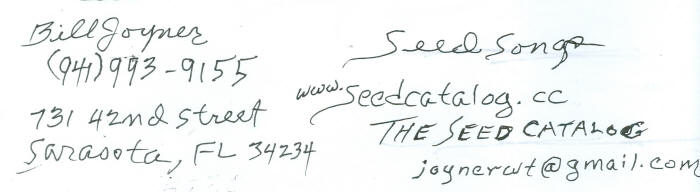 Bill Joyner
(941) 993-9155
731 42nd street
Sarasota, FL 34234
Seed Songs
www.seedcatalog.cc
THE SEED CATALOG
joynerwt@gmail.com